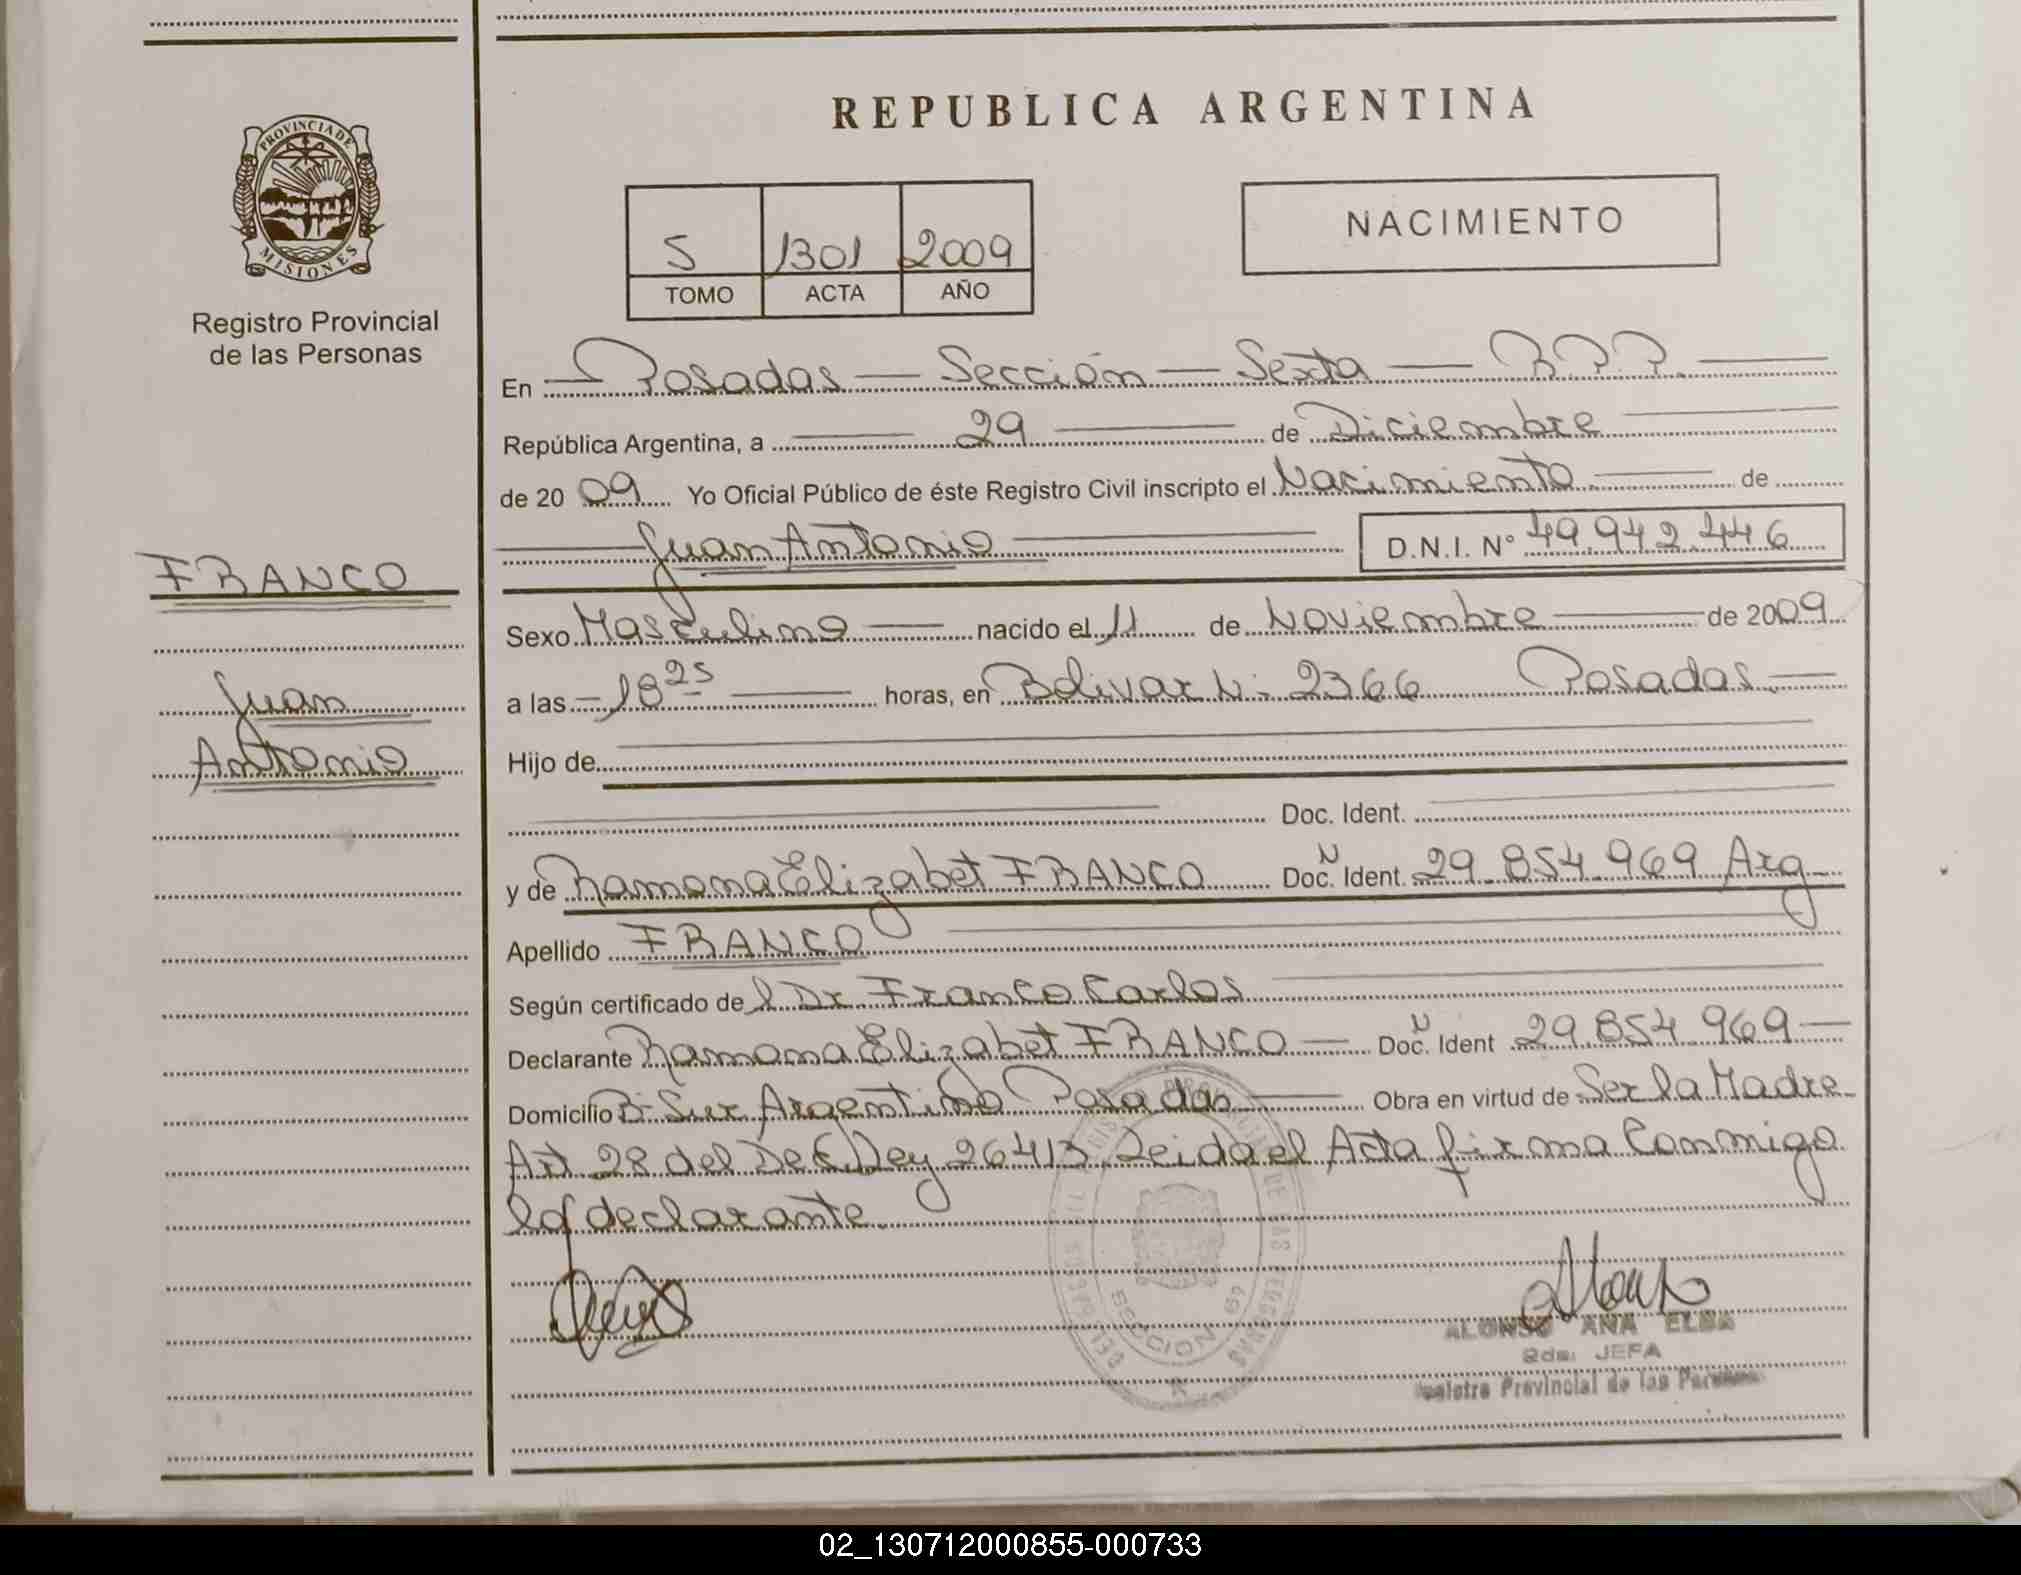 PROVINCIA DE
MISIONES
Registro Provincial
de las Personas
FRANCO
Juan
Antonio
REPUBLICA ARGENTINA
5 1301 2009
TOMO ACTA AÑO
NACIMIENTO
En Posadas Sección Sexta R.P.P.
República Argentina, a 29 de Diciembre
de 2009 Yo Oficial Público de éste Registro Civil inscripto el Nacimiento de
Juan Antonio D.N.I. N° 49.942.446
Sexo Masculino nacido el 11 de Noviembre de 2009
a las 18 25 horas, en Bolivar N: 2366 Posadas
Hijo de
Doc. Ident.
y de Ramona Elizabet FRANCO Doc. N Ident. 29.854.969 Arg
Apellido FRANCO
Según certificado del Dr Franco Carlos
Declarante Ramona Elizabet FRANCO Doc. N Ident 29.854.969
Domicilio B: Sur Argentino Posadas Obra en virtud de Ser la Madre
Art 28 del Dec. Ley 26413. Leida el Acta firma Conmigo
la declarante.
SECCION 6ª
ALONSO ANA ELBA
2da. JEFA
Registro Provincial de las Personas
02_130712000855-000733